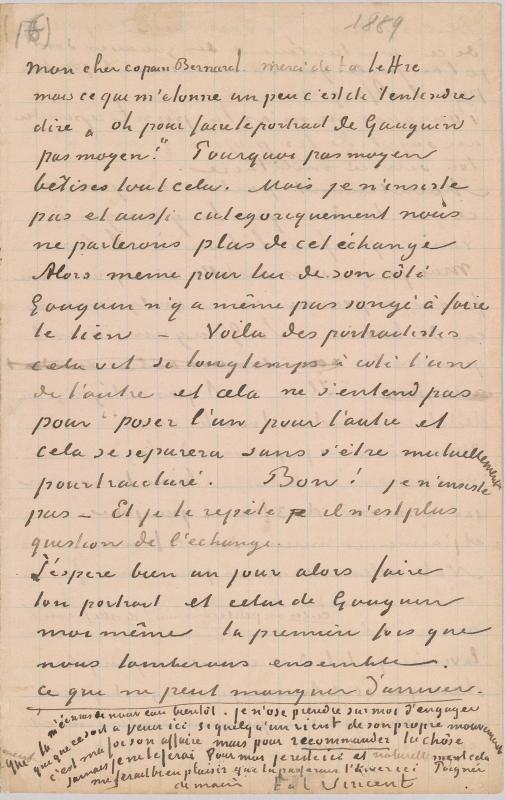 (6)
1889
mon cher copain Bernard merci de ta lettre
mais ce qui m'etonne un peu c'est de t'entendre
dire „ oh pour faire le portrait de Gauguin
pas moyen!" Pourquoi pas moyen
betises tout cela. Mais je n'insiste
pas et aussi categoriquement nous
ne parlerons plus de cet échange
Alors meme pour lui de son côté
Gauguin n'y a même pas songé à faire
le tien — Voila des portraitistes
cela vit si longtemps à coté l'un
de l'autre et cela ne s'entend pas
pour poser l'un pour l'autre et
cela se separera sans s'être mutuellement
pourtraicturé. Bon! je n'insiste
pas — Et je le repète il n'est plus
question de l'échange.
J'espere bien un jour alors faire
ton portrait et celui de Gauguin
moi même la première fois que
nous tomberons ensemble.
ce que ne peut manquer d'arriver.
tu m'écriras de nouveau bientôt. je n'ose prendre sur moi d'engager
qui que ce soit à venir ici si quelqu'un vient de son propre mouvement
c'est ma foi son affaire mais pour recommander la chose
jamais je ne le ferai Pour moi je reste ici et naturellement cela
me ferait bien plaisir que tu passerais l'hiver ici Poignée
de main
t. à t. Vincent